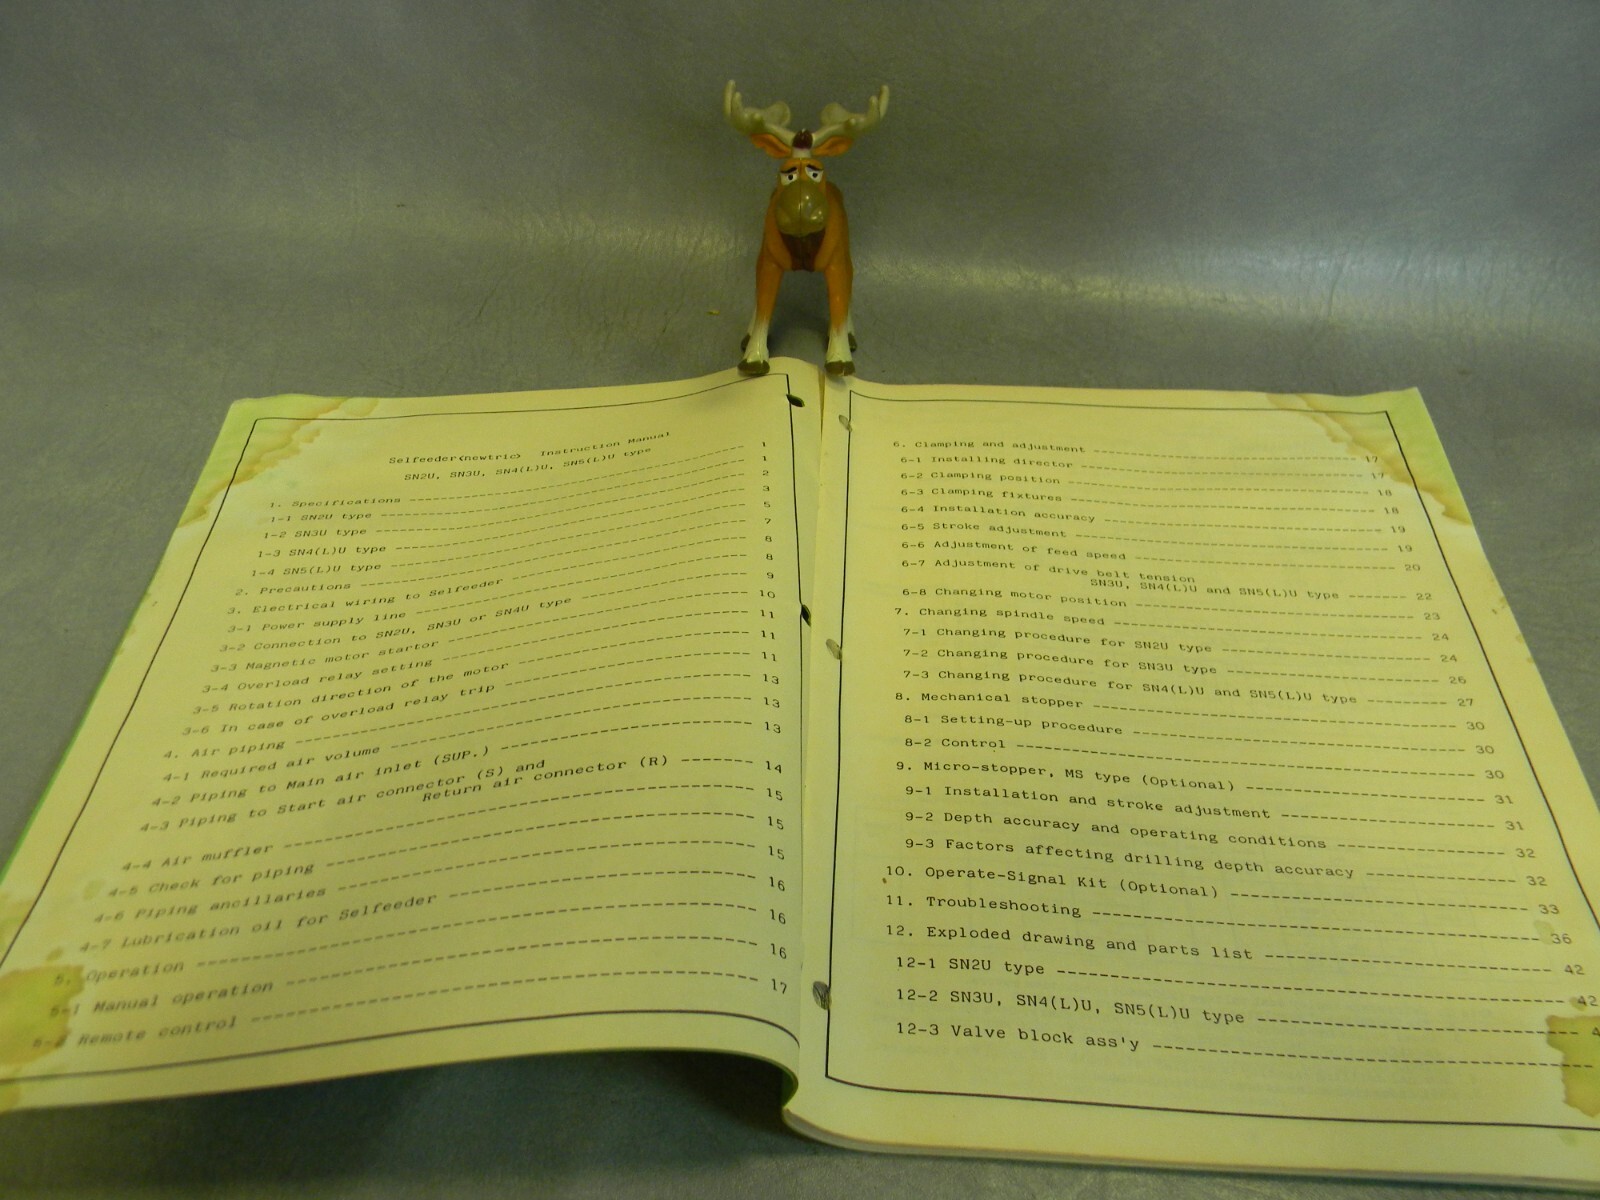 Selfeeder<newtric> Instruction Manual
SN2U, SN3U, SN4(L)U, SN5(L)U type
1. Specifications ---------- 1
1-1 SN2U type ---------- 1
1-2 SN3U type ---------- 2
1-3 SN4(L)U type ---------- 3
1-4 SN5(L)U type ---------- 5
2. Precautions ---------- 7
3. Electrical wiring to Selfeeder ---------- 8
3-1 Power supply line ---------- 8
3-2 Connection to SN2U, SN3U or SN4U type ---------- 9
3-3 Magnetic motor startor ---------- 10
3-4 Overload relay setting ---------- 11
3-5 Rotation direction of the motor ---------- 11
3-6 In case of overload relay trip ---------- 11
4. Air piping ---------- 13
4-1 Required air volume ---------- 13
4-2 Piping to Main air inlet (SUP.) ---------- 13
4-3 Piping to Start air connector (S) and
Return air connector (R) ------ 14
4-4 Air muffler ---------- 15
4-5 Check for piping ---------- 15
4-6 Piping ancillaries ---------- 15
4-7 Lubrication oil for Selfeeder ---------- 16
5. Operation ---------- 16
5-1 Manual operation ---------- 16
5-2 Remote control ---------- 17
6. Clamping and adjustment ---------- 17
6-1 Installing director ---------- 17
6-2 Clamping position ---------- 18
6-3 Clamping fixtures ---------- 18
6-4 Installation accuracy ---------- 19
6-5 Stroke adjustment ---------- 19
6-6 Adjustment of feed speed ---------- 20
6-7 Adjustment of drive belt tension
SN3U, SN4(L)U and SN5(L)U type ------- 22
6-8 Changing motor position ---------- 23
7. Changing spindle speed ---------- 24
7-1 Changing procedure for SN2U type ---------- 24
7-2 Changing procedure for SN3U type ---------- 26
7-3 Changing procedure for SN4(L)U and SN5(L)U type --------- 27
8. Mechanical stopper ---------- 30
8-1 Setting-up procedure ---------- 30
8-2 Control ---------- 30
9. Micro-stopper, MS type (Optional) ---------- 31
9-1 Installation and stroke adjustment ---------- 31
9-2 Depth accuracy and operating conditions ---------- 32
9-3 Factors affecting drilling depth accuracy ---------- 32
10. Operate-Signal Kit (Optional) ---------- 33
11. Troubleshooting ---------- 36
12. Exploded drawing and parts list ---------- 42
12-1 SN2U type ---------- 42
12-2 SN3U, SN4(L)U, SN5(L)U type ---------- 4
12-3 Valve block ass'y ----------